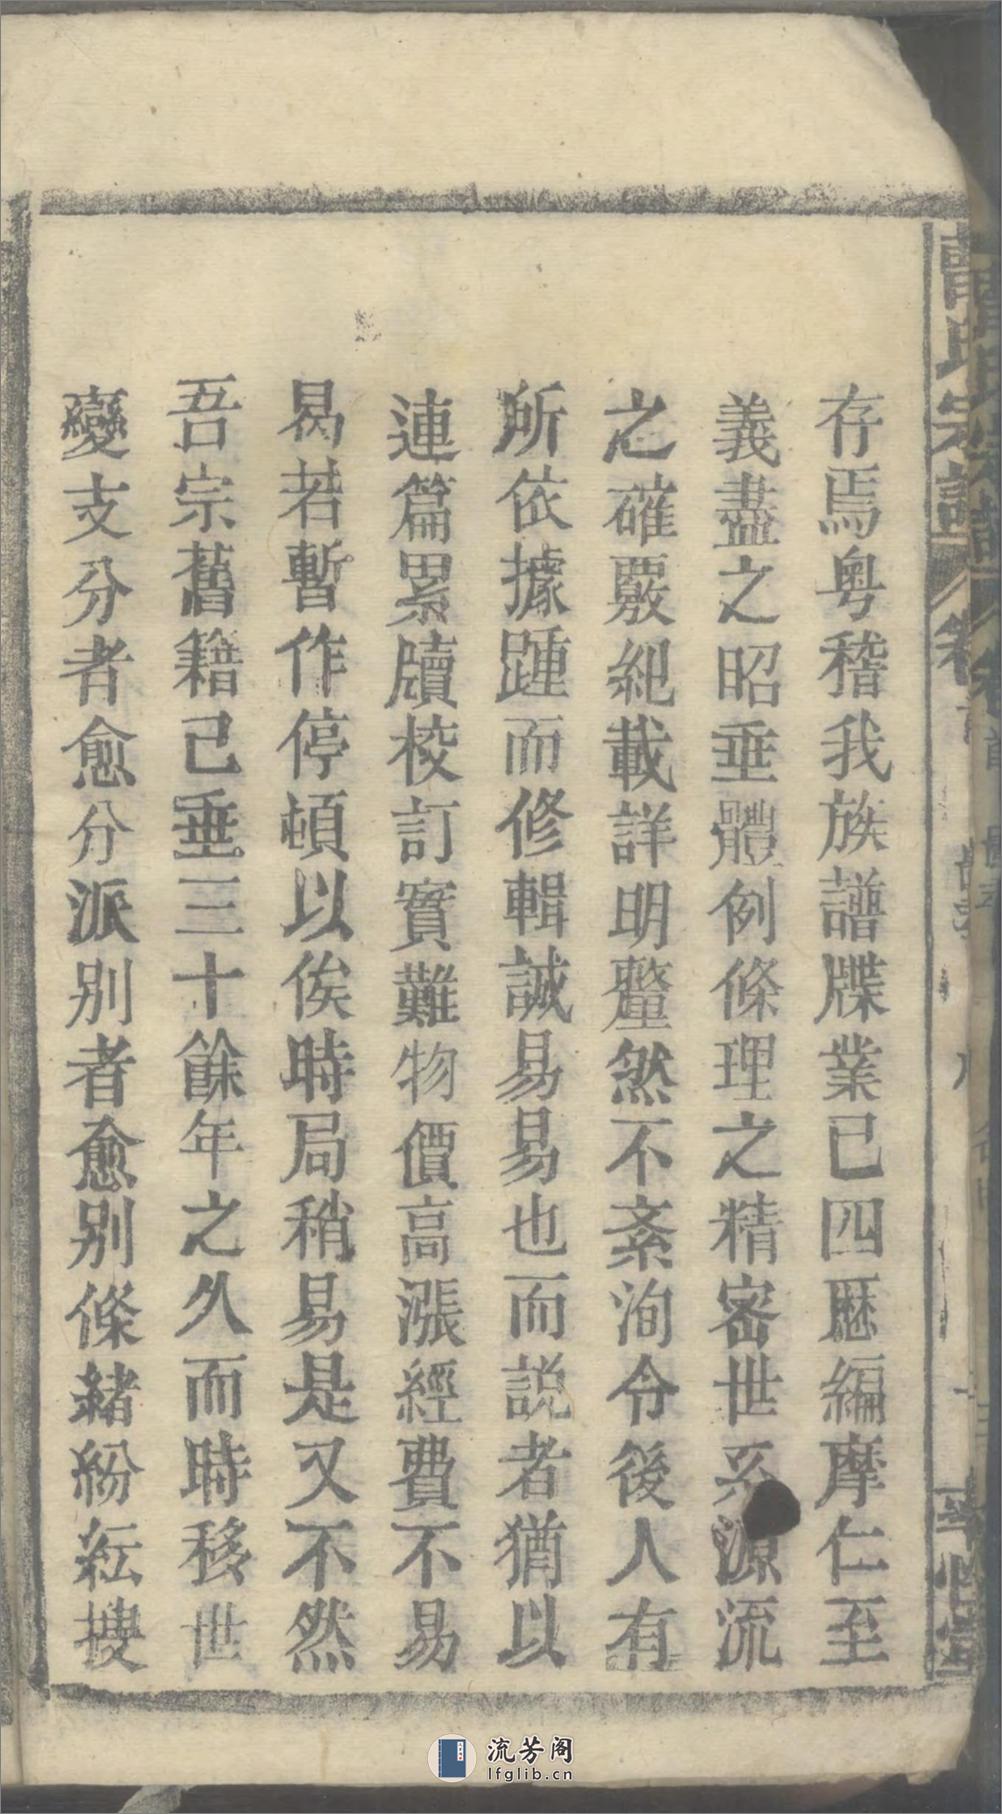 存焉粤稽我族譜牒業已四歷編摩仁至
義盡之昭垂體例條理之精密世系源流
之確覈紀載詳明釐然不紊洵令後人有
所依據踵而修輯誠易易也而説者猶以
連篇累牘校訂實難物價高漲經費不易
曷若暫作停頓以俟時局稍易是又不然
吾宗舊籍已垂三十餘年之久而時移世
變支分者愈分派别者愈别條緒紛紜搜
氏宗譜
卷
流芳阁
lfglib.cn